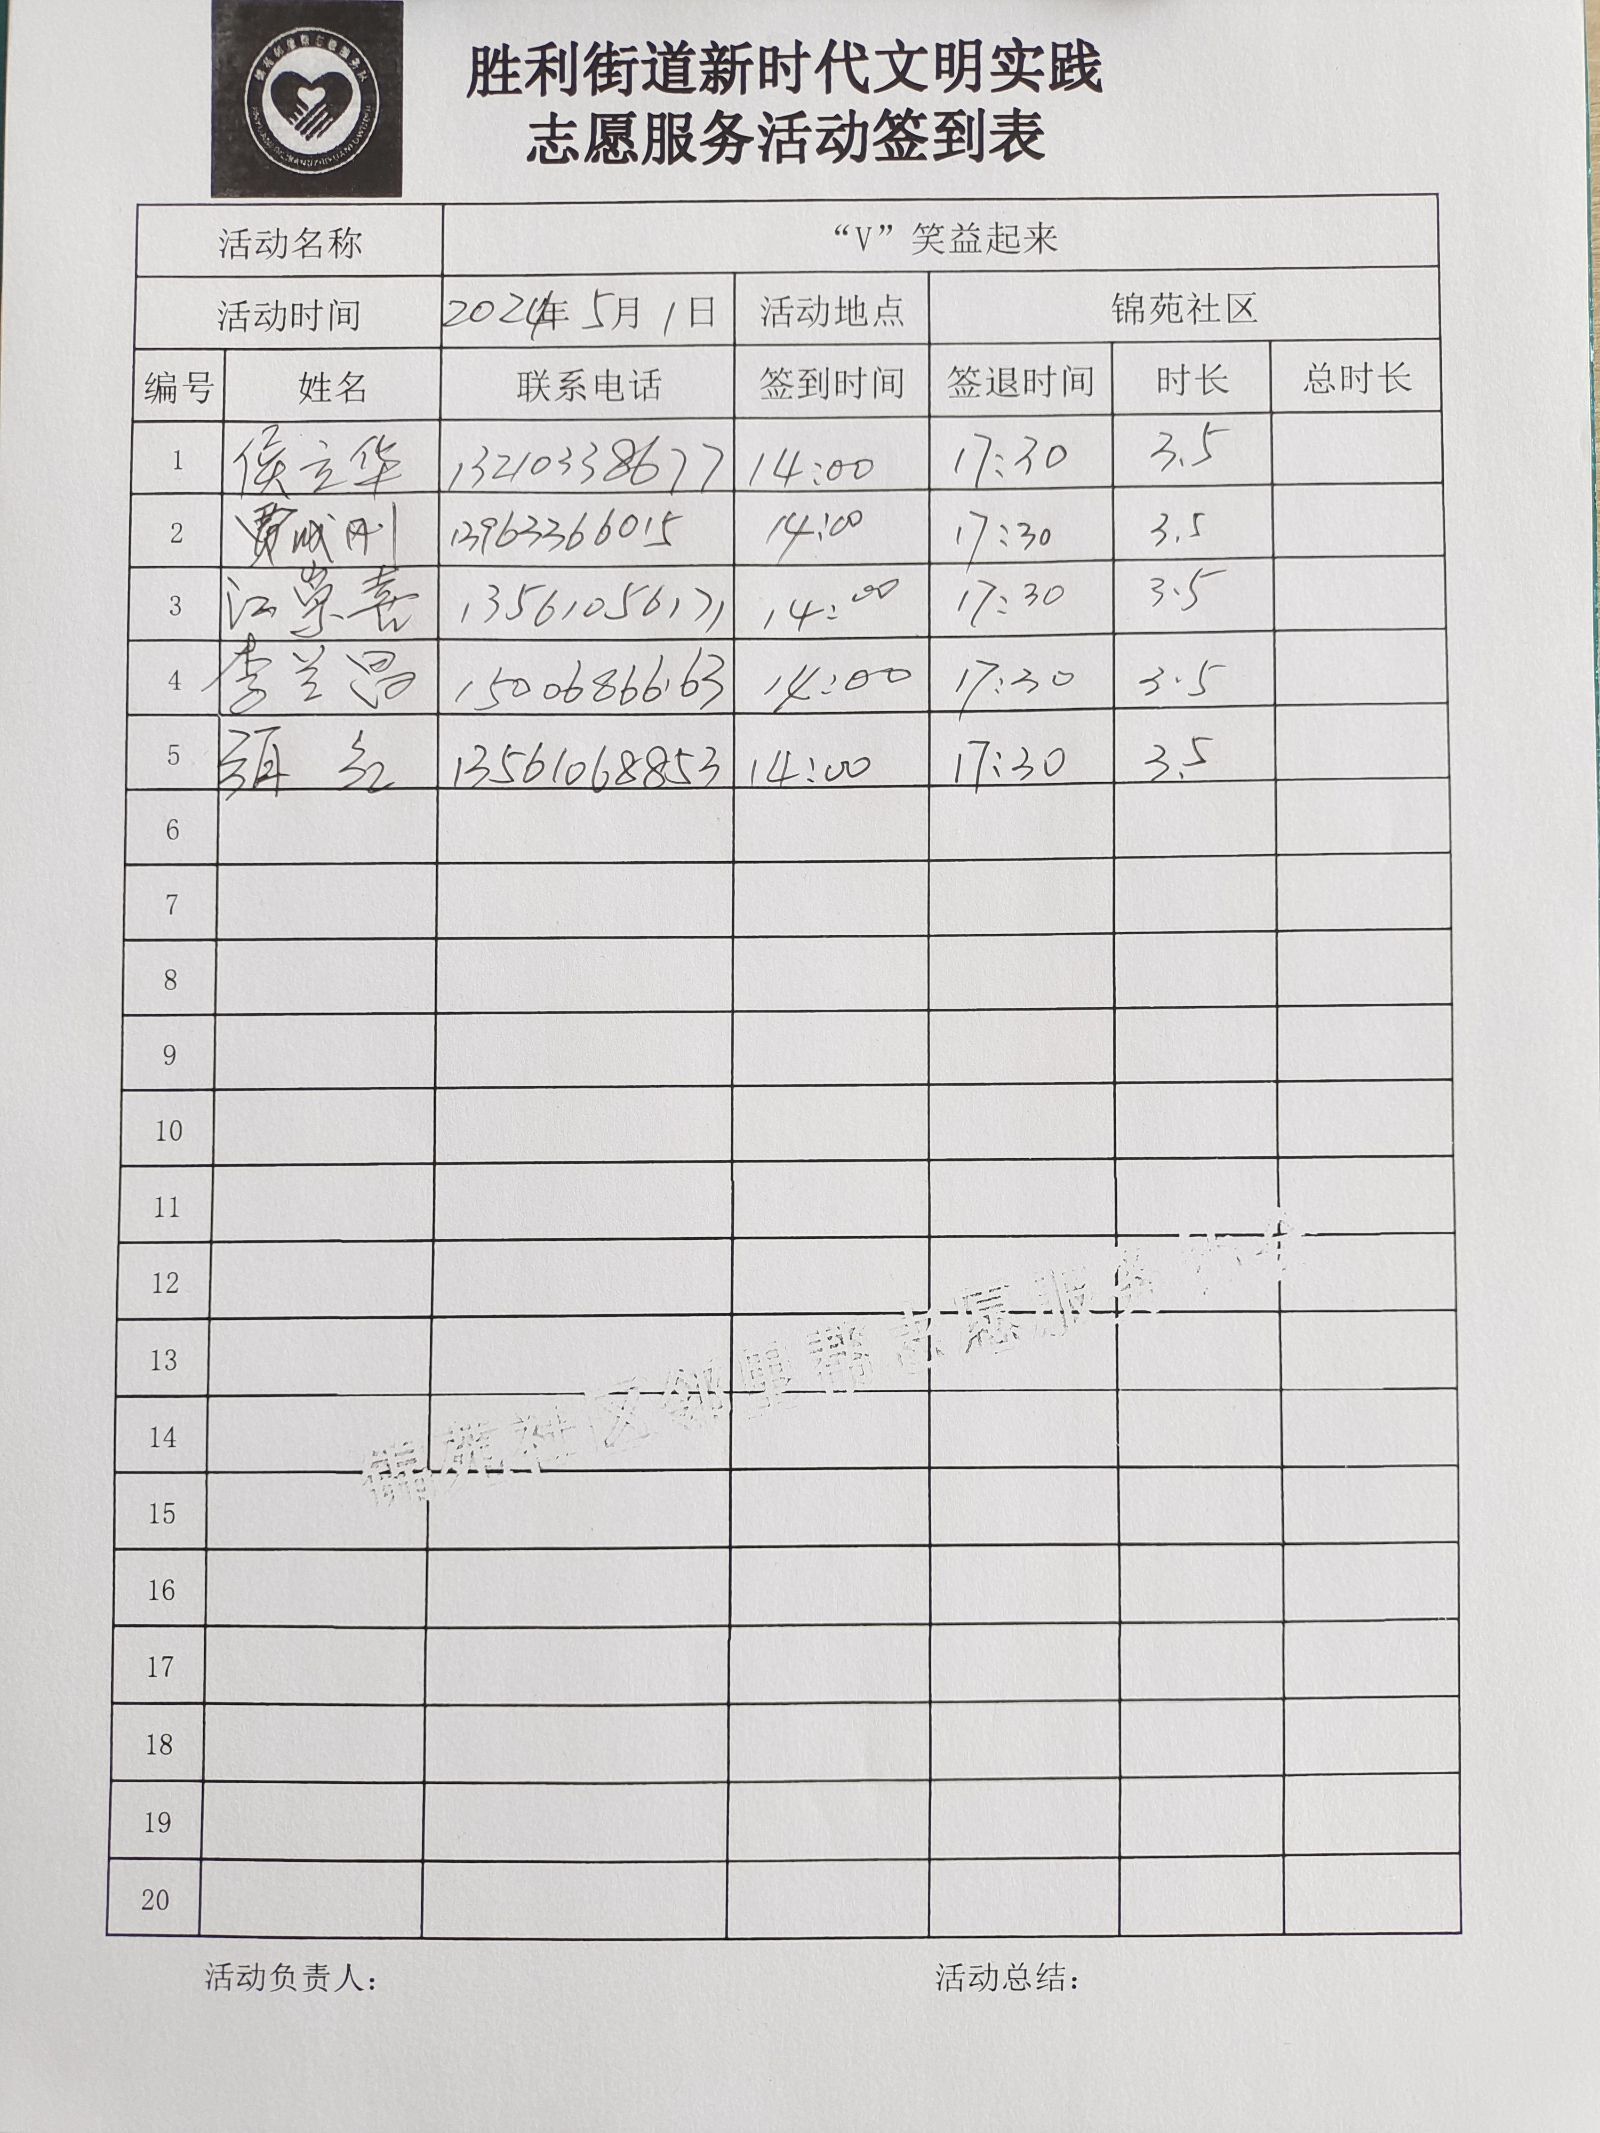 胜利街道新时代文明实践
志愿服务活动签到表
活动名称 “V”笑益起来
活动时间 2024年 5月 1日 活动地点 锦苑社区
编号 姓名 联系电话 签到时间 签退时间 时长 总时长
1 侯立华 13210338677 14:00 17:30 3.5
2 贾成刚 13963366015 14:00 17:30 3.5
3 江崇喜 13561056171 14:00 17:30 3.5
4 李兰昌 15006866163 14:00 17:30 3.5
5 红 13561068853 14:00 17:30 3.5
6
7
8
9
10
11
12
13
14
15
16
17
18
19
20
锦苑社区邻里帮志愿服务
活动负责人: 活动总结: